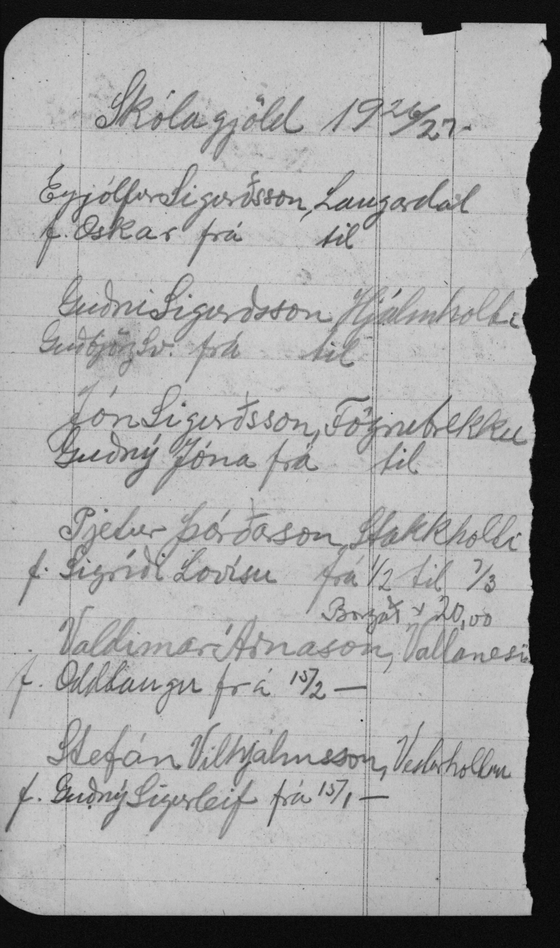 Skólagjöld 1926/27.
Eyjólfur Sigurðsson, Laugardal
f. Óskar frá til
Guðni Sigurðsson Hjálmholti
Guðbjörg Sv. frá til
Jón Sigurðsson, Fögrubrekku
Guðný Jóna frá til
Pjetur Þórðarson, Stakkholti
f. Sigríði Lovísu frá 1/2 til 1/3
Borgað 20,00
Valdimar Árnason, Vallanesi
f. Oddlaugu frá 15/2 —
Stefán Vilhjálmsson,
f. Guðný Sigurleif frá 15/1 —